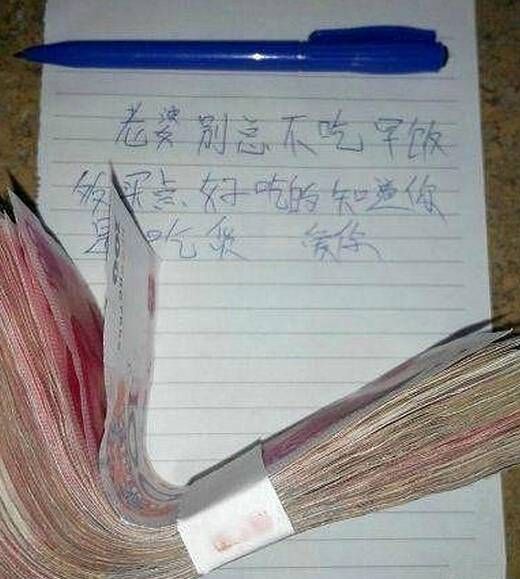 老婆别总不吃早饭
够买点好吃的知道你
是吃货 爱你